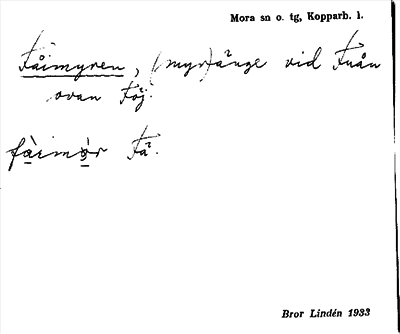 Mora sn o. tg, Kopparb. l.
Fåimyren, (myr)änge vid Fuån
ovan Föj.
fàimòr Få.
Bror Lindén 1933